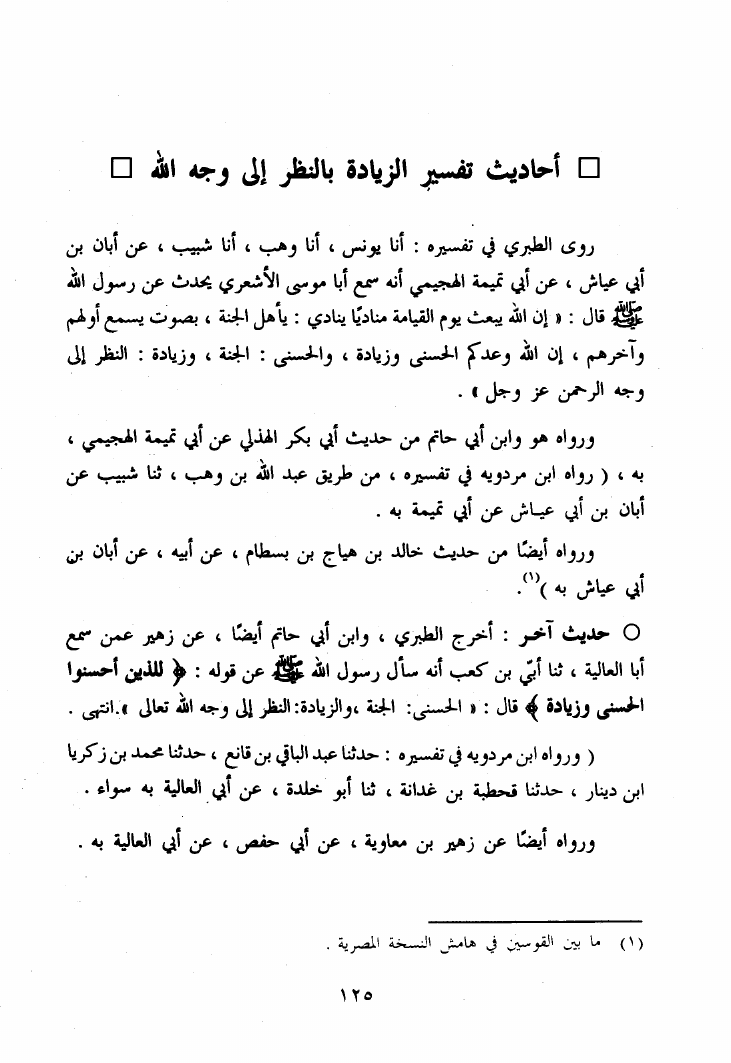 □ أحاديث تفسير الزيادة بالنظر إلى وجه الله □
روى الطبري في تفسيره : أنا يونس ، أنا وهب ، أنا شبيب ، عن أبان بن
أبي عياش ، عن أبي تميمة الهجيمي أنه سمع أبا موسى الأشعري يحدث عن رسول الله
ﷺ قال : « إن الله يبعث يوم القيامة مناديًا ينادي : يأهل الجنة ، بصوت يسمع أولهم
وآخرهم ، إن الله وعدكم الحسنى وزيادة ، والحسنى : الجنة ، وزيادة : النظر إلى
وجه الرحمن عز وجل » .
ورواه هو وابن أبي حاتم من حديث أبي بكر الهذلي عن أبي تميمة الهجيمي ،
به ، ( رواه ابن مردويه في تفسيره ، من طريق عبد الله بن وهب ، ثنا شبيب عن
أبان بن أبي عياش عن أبي تميمة به .
ورواه أيضًا من حديث خالد بن هياج بن بسطام ، عن أبيه ، عن أبان بن
أبي عياش به )(١).
○ حديث آخر : أخرج الطبري ، وابن أبي حاتم أيضًا ، عن زهير عمن سمع
أبا العالية ، ثنا أبيّ بن كعب أنه سأل رسول الله ﷺ عن قوله : ﴿ للذين أحسنوا
الحسنى وزيادة ﴾ قال : « الحسنى: الجنة ،والزيادة: النظر إلى وجه الله تعالى ».انتهى .
( ورواه ابن مردويه في تفسيره : حدثنا عبد الباقي بن قانع ، حدثنا محمد بن زكريا
ابن دينار ، حدثنا قحطبة بن غدانة ، ثنا أبو خلدة ، عن أبي العالية به سواء .
ورواه أيضًا عن زهير بن معاوية ، عن أبي حفص ، عن أبي العالية به .
(١) ما بين القوسين في هامش النسخة المصرية .
١٢٥